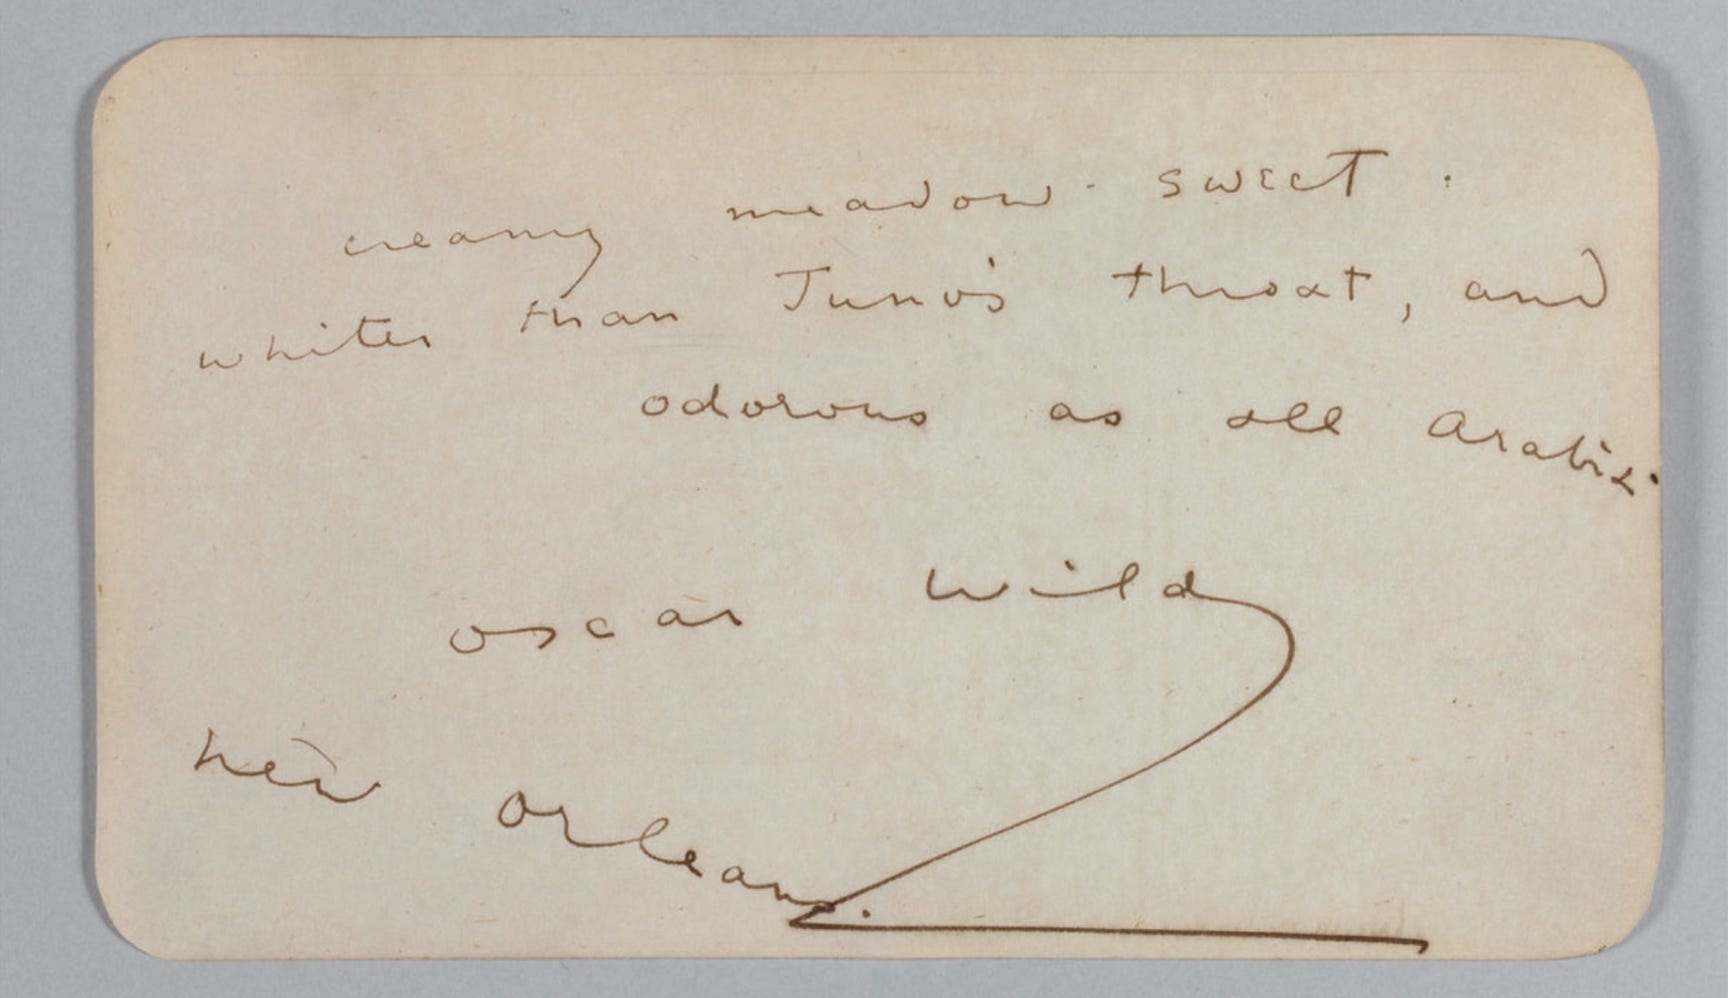 creamy meadow-sweet.
whiter than Juno's throat, and
odorous as all Arabia.
Oscar Wilde
New Orleans.